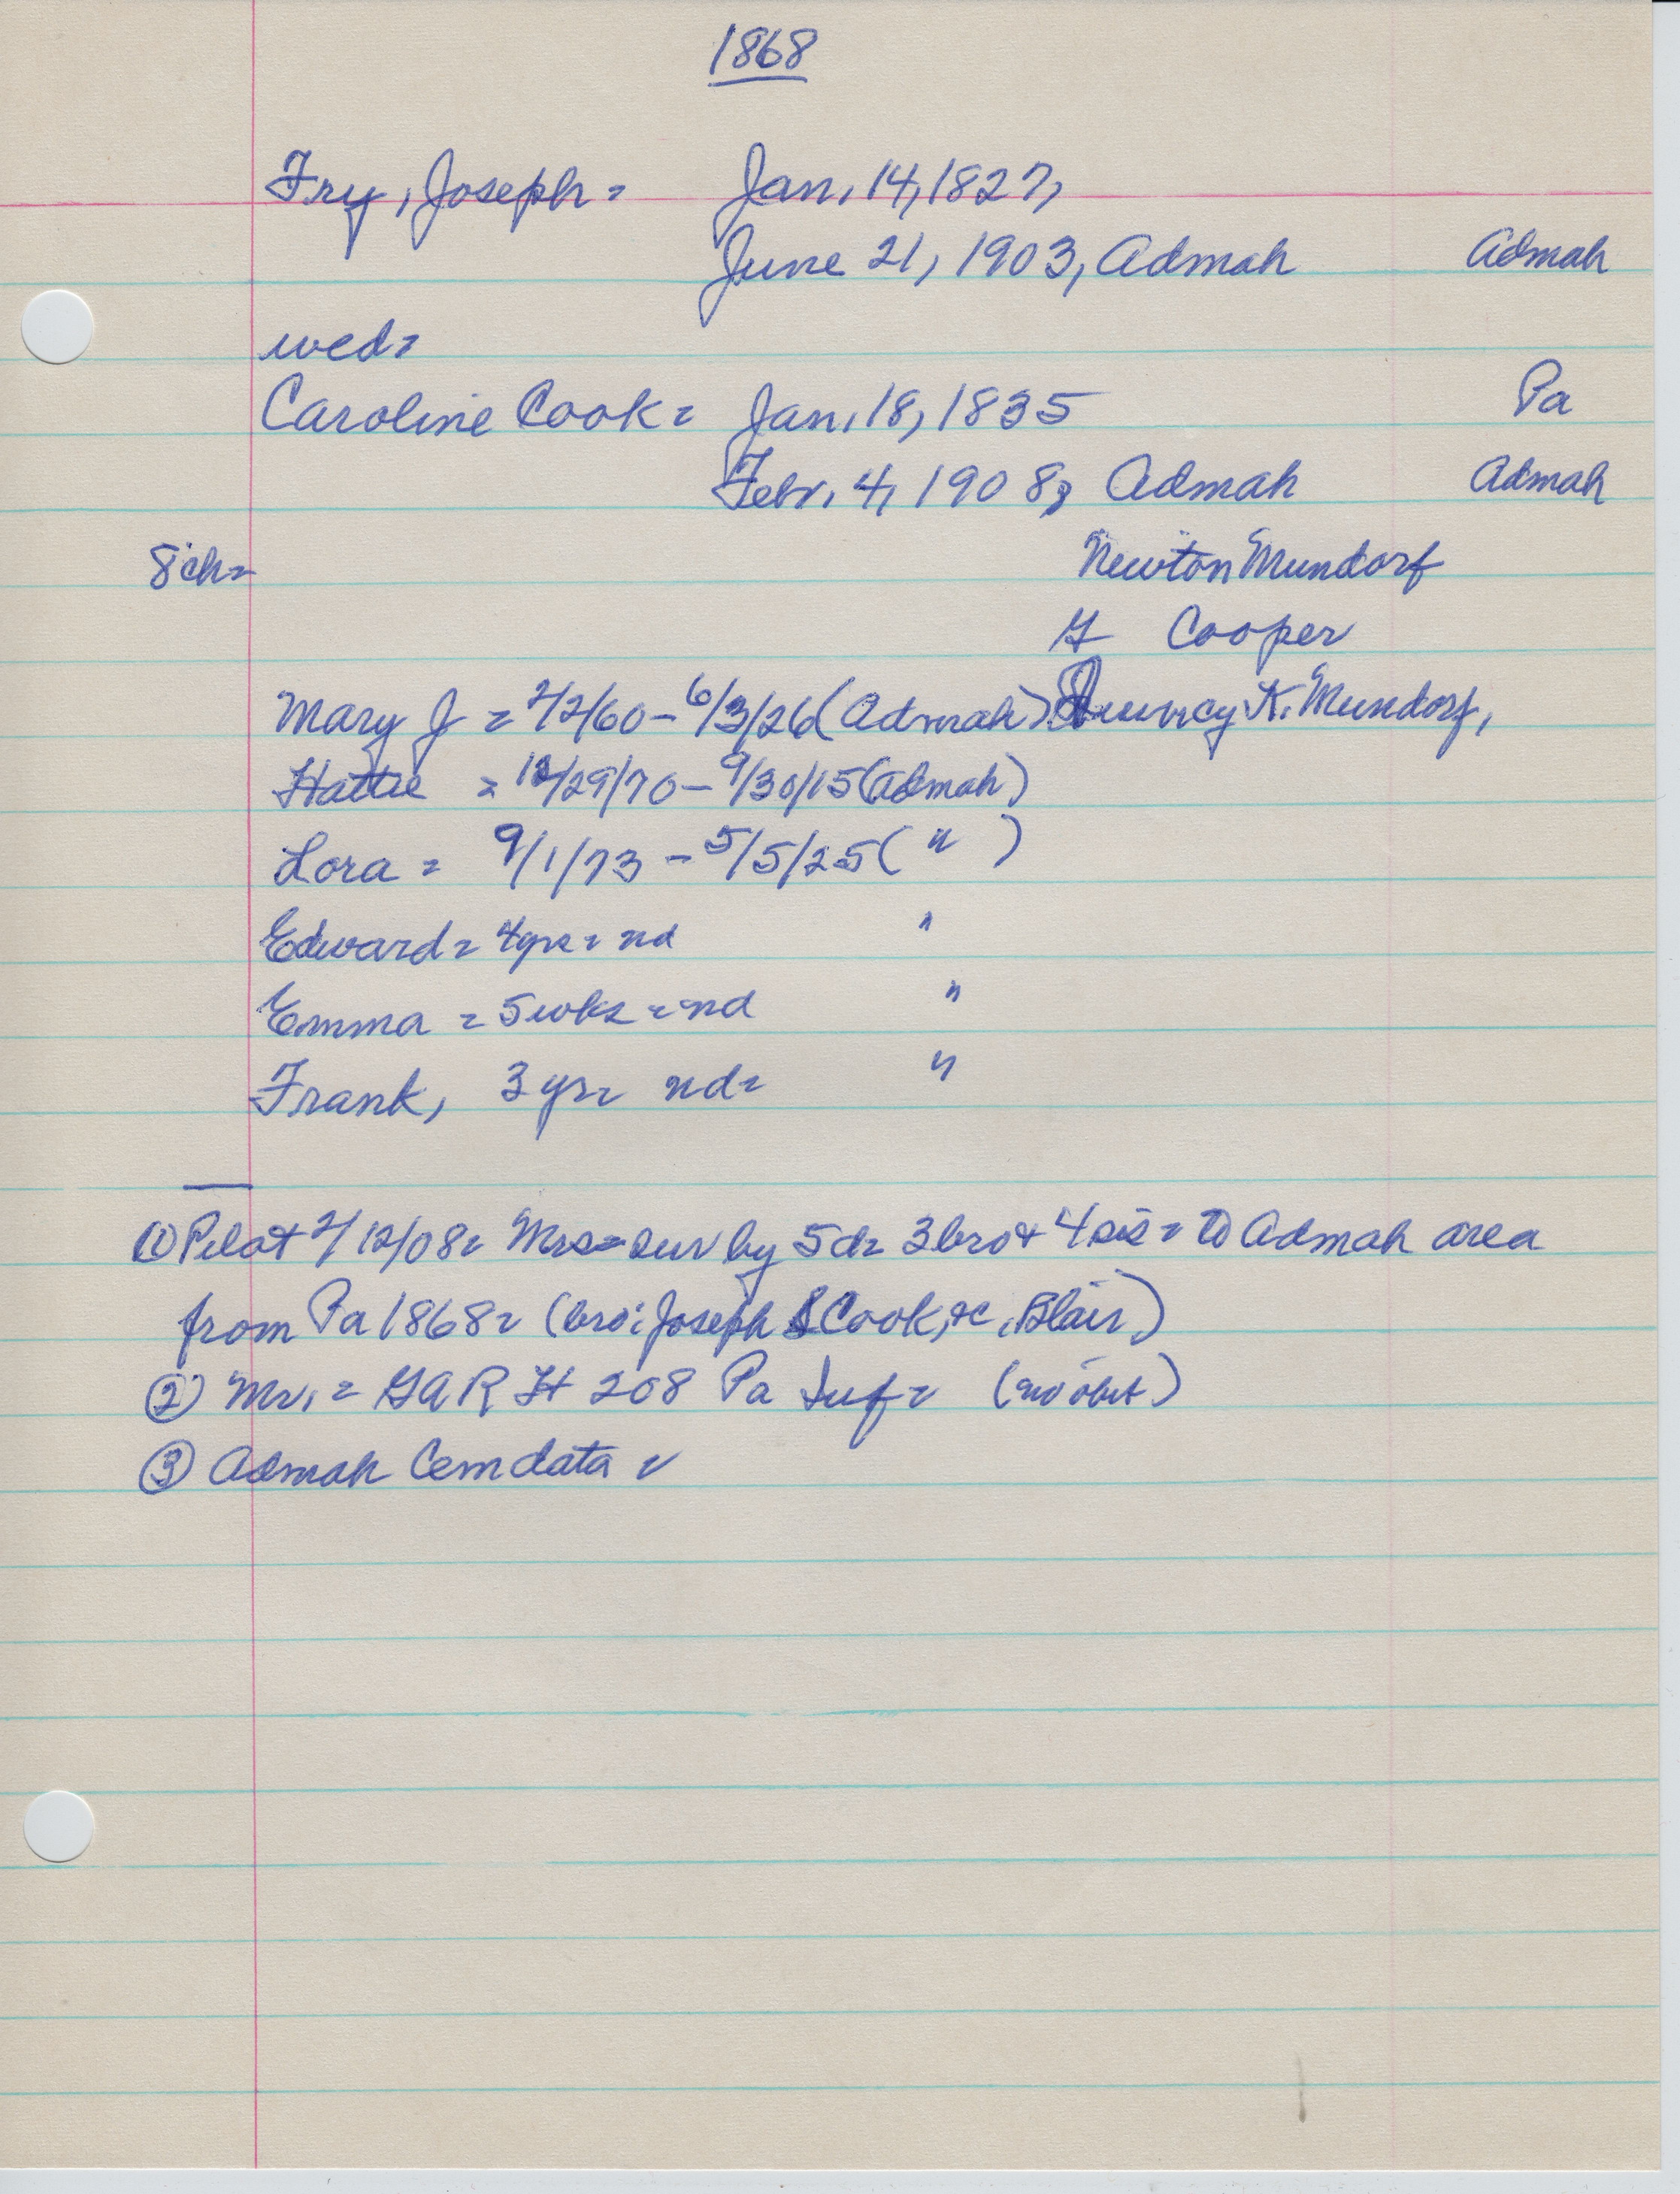 1868
Fry, Joseph = Jan. 14, 1827,
June 21, 1903, Admah Admah
wed=
Caroline Cook = Jan. 18, 1835 Pa
Febr. 4, 1908, Admah Admah
8 ch= Newton Mundorf
Cooper
Mary J = 2/2/60 - 6/3/26 (Admah) K. Mundorf,
Hattie = 12/29/70 - 9/30/15 (Admah)
Lora = 9/1/73 - 5/5/25 ( " )
Edward = 4 yrs = nd "
Emma = 5 wks = nd "
Frank, 3 yr= nd= "
(1) Pilot 2/12/08= Mrs= sur by 5 d= 3 bro + 4 sis = to Admah area
from Pa 1868= (bro: Joseph S Cook, sc, Blair)
(2) Mr. = GAR H 208 Pa Inf= (no obit)
(3) Admah Cem data =